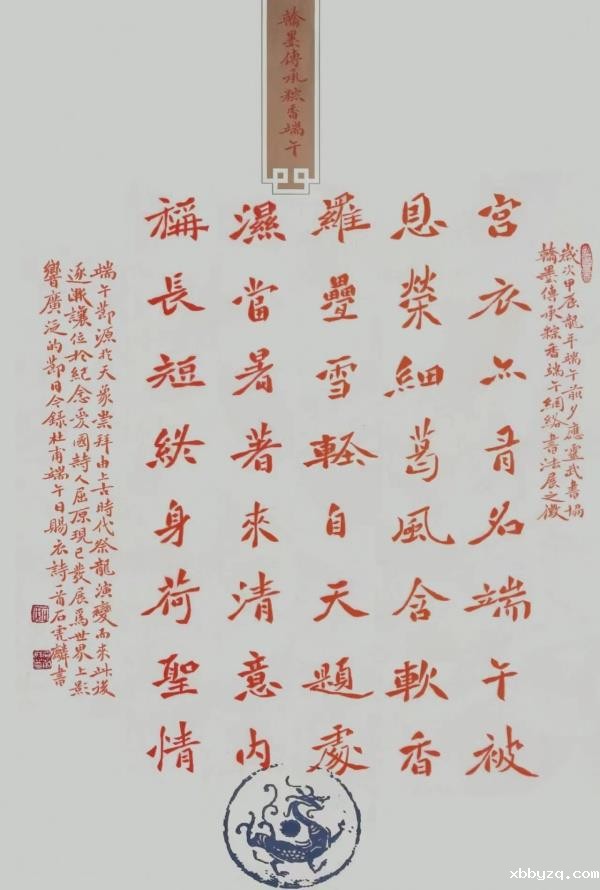 翰墨傳承粽香端午
歲次甲辰龍年端午前夕應靈武書
翰墨傳承粽香端午網絡書法展之徵
宮衣亦有名端午被
恩榮細葛風含軟香
羅疊雪輕自天題處
濕當暑著來清意內
稱長短終身荷聖情
端午節源於天象崇拜由上古時代祭龍演變而來此後
逐漸讓位於紀念愛國詩人屈原現已發展為世界上影
響廣泛的節日今錄杜甫端午日賜衣詩一首石麟書
xbbyzq.com